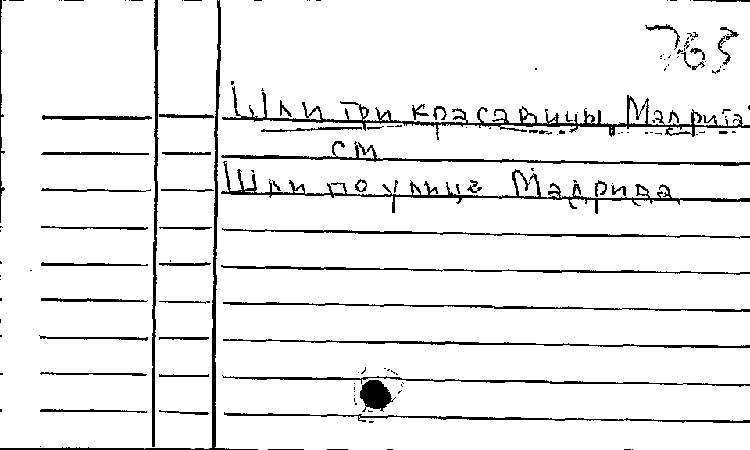 763
Шли три красавицы, Мадрита
см
Шли по улице Мадрида